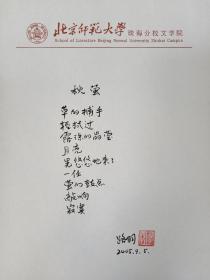 北京师范大学 珠海分校文学院
School of Literature Beijing Normal University Zhuhai Campus
秋萤
草的捕手
掠过
露珠的晶莹
月亮
晃悠悠地来了
一任
萤的鼓点
敲响
寂寞
路羽
2005.9.5.